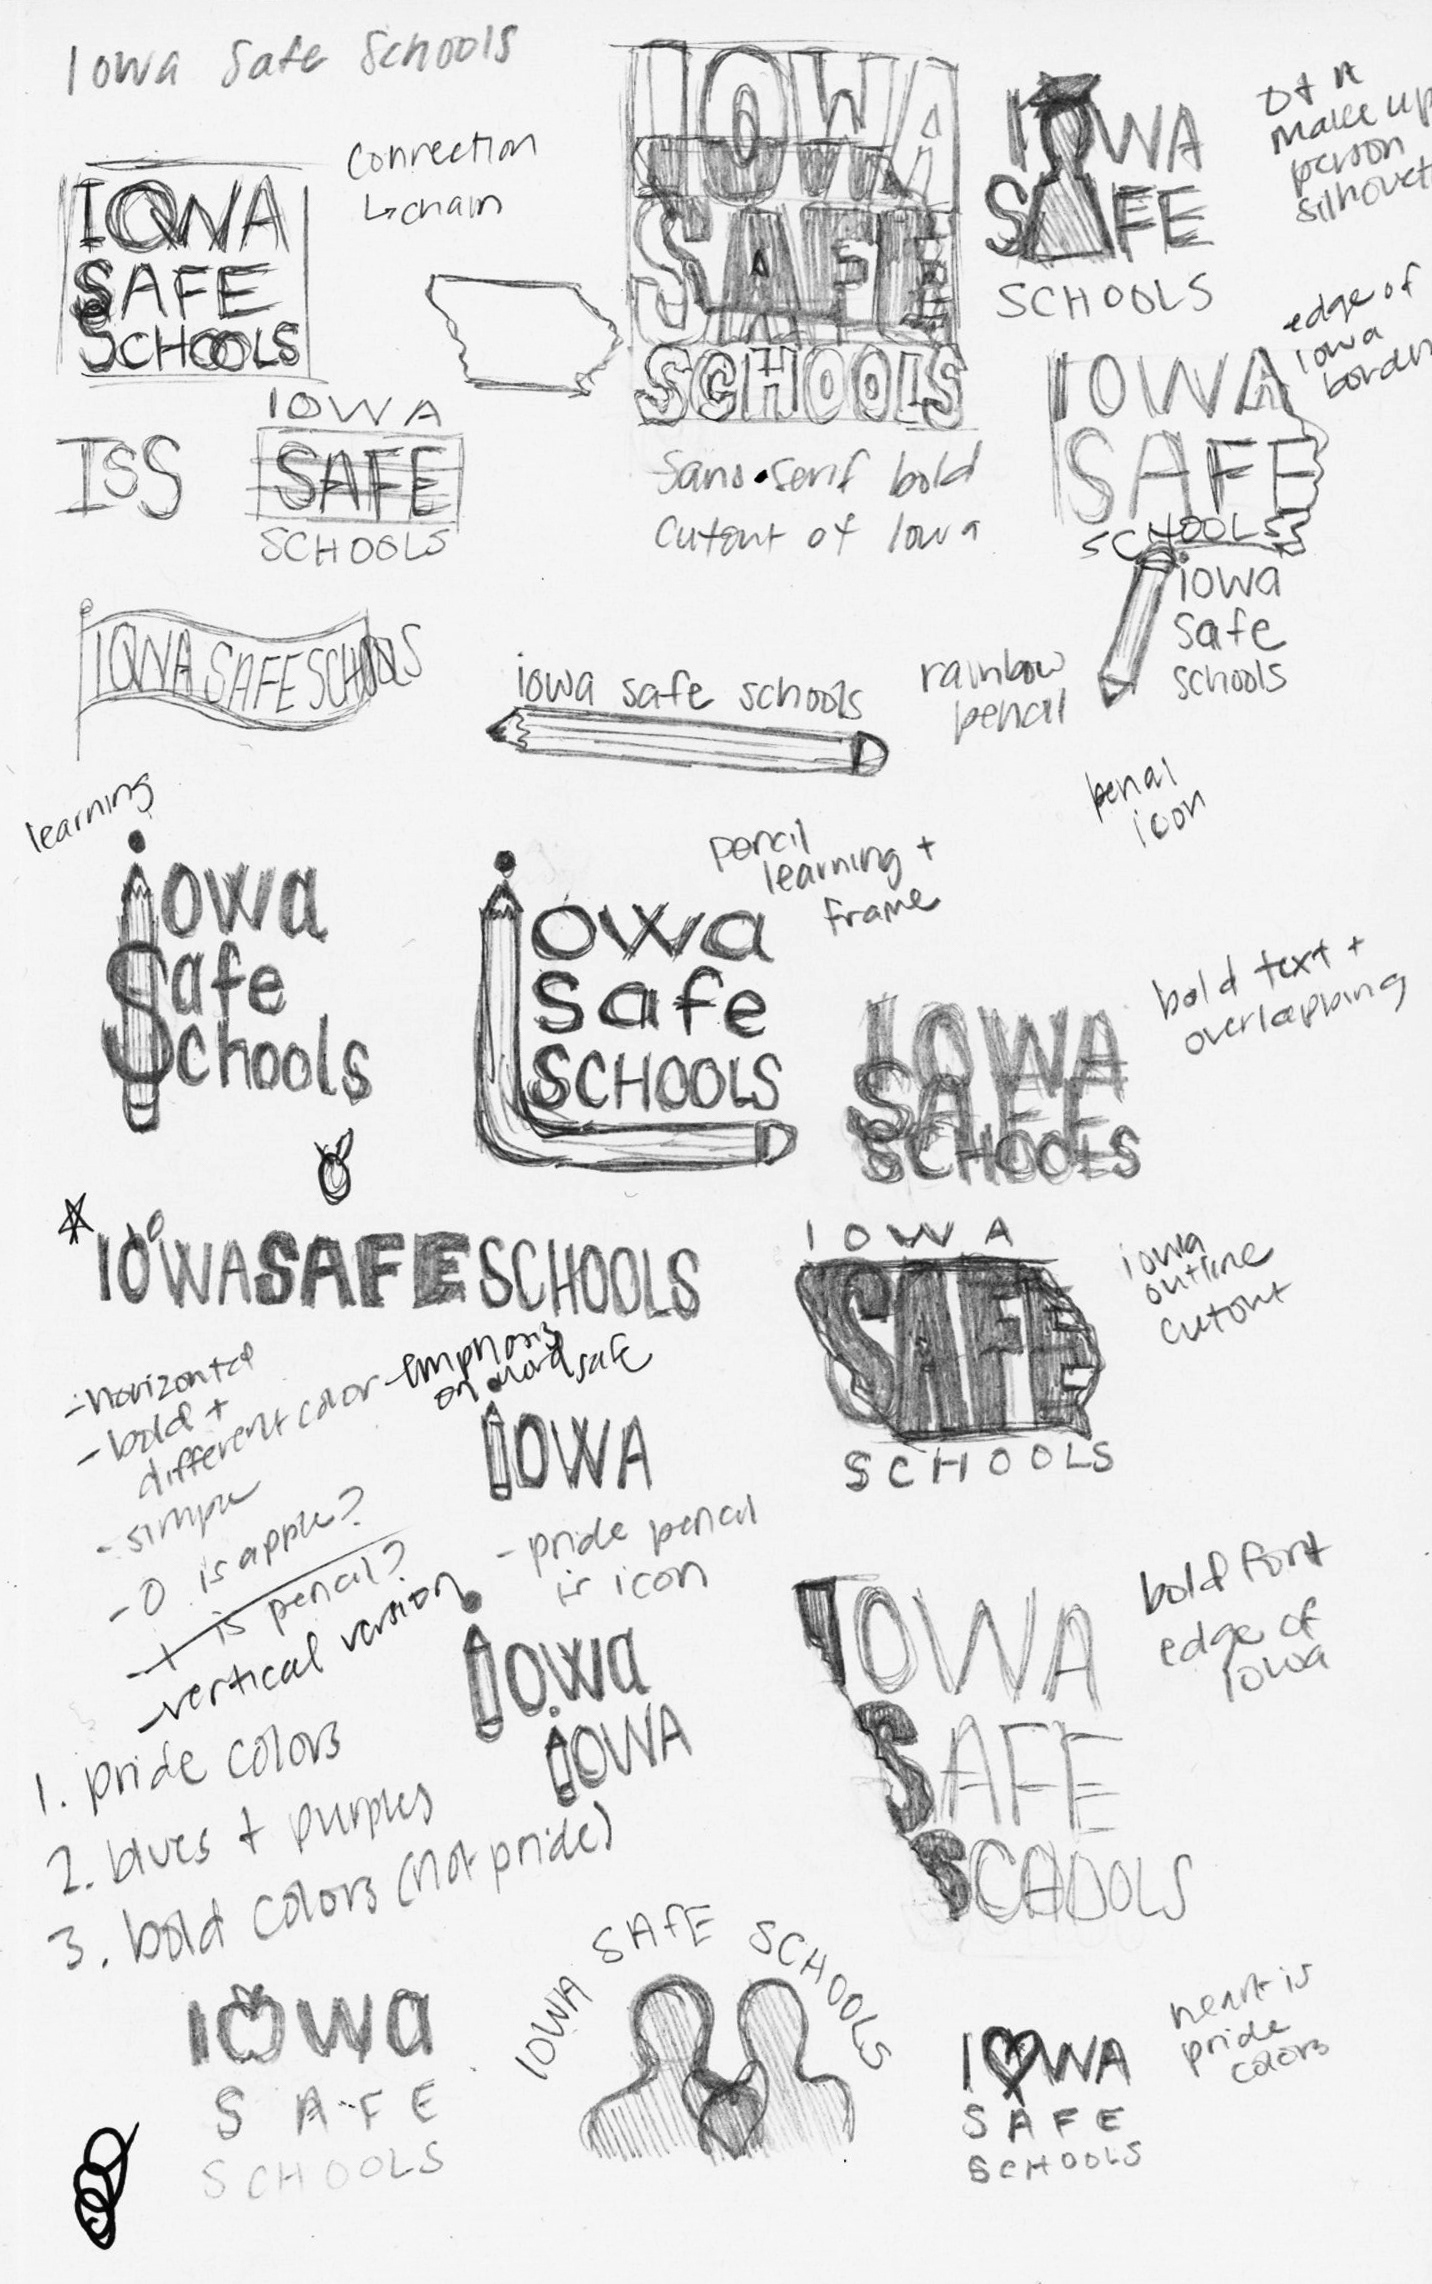 Iowa Safe Schools
IOWA
SAFE
SCHOOLS
Connection
↳ chain
IOWA
SAFE
SCHOOLS
Sans-serif bold
Cutout of Iowa
IOWA
SAFE
SCHOOLS
O + A
make up
person
edge of
iowa
IOWA
SAFE
SCHOOLS
ISS
IOWA
SAFE
SCHOOLS
IOWA SAFE SCHOOLS
iowa safe schools
rainbow
pencil
iowa
safe
schools
icon
learning
iowa
Safe
Schools
iowa
safe
SCHOOLS
pencil
learning +
frame
IOWA
SAFE
SCHOOLS
bold text +
overlapping
IOWASAFESCHOOLS
- horizontal
- bold +
different color - emphasis
on word safe
- simple
- O is apple?
- I is pencil?
- vertical version
IOWA
- pride pencil
is icon
iowa
iOWA
IOWA
SAFE
SCHOOLS
iowa
outline
cutout
IOWA
SAFE
SCHOOLS
bold font
edge of
iowa
1. pride colors
2. blues + purples
3. bold colors (not pride)
IOWa
SAFE
SCHOOLS
IOWA SAFE SCHOOLS
IOWA
SAFE
SCHOOLS
heart is
pride
colors